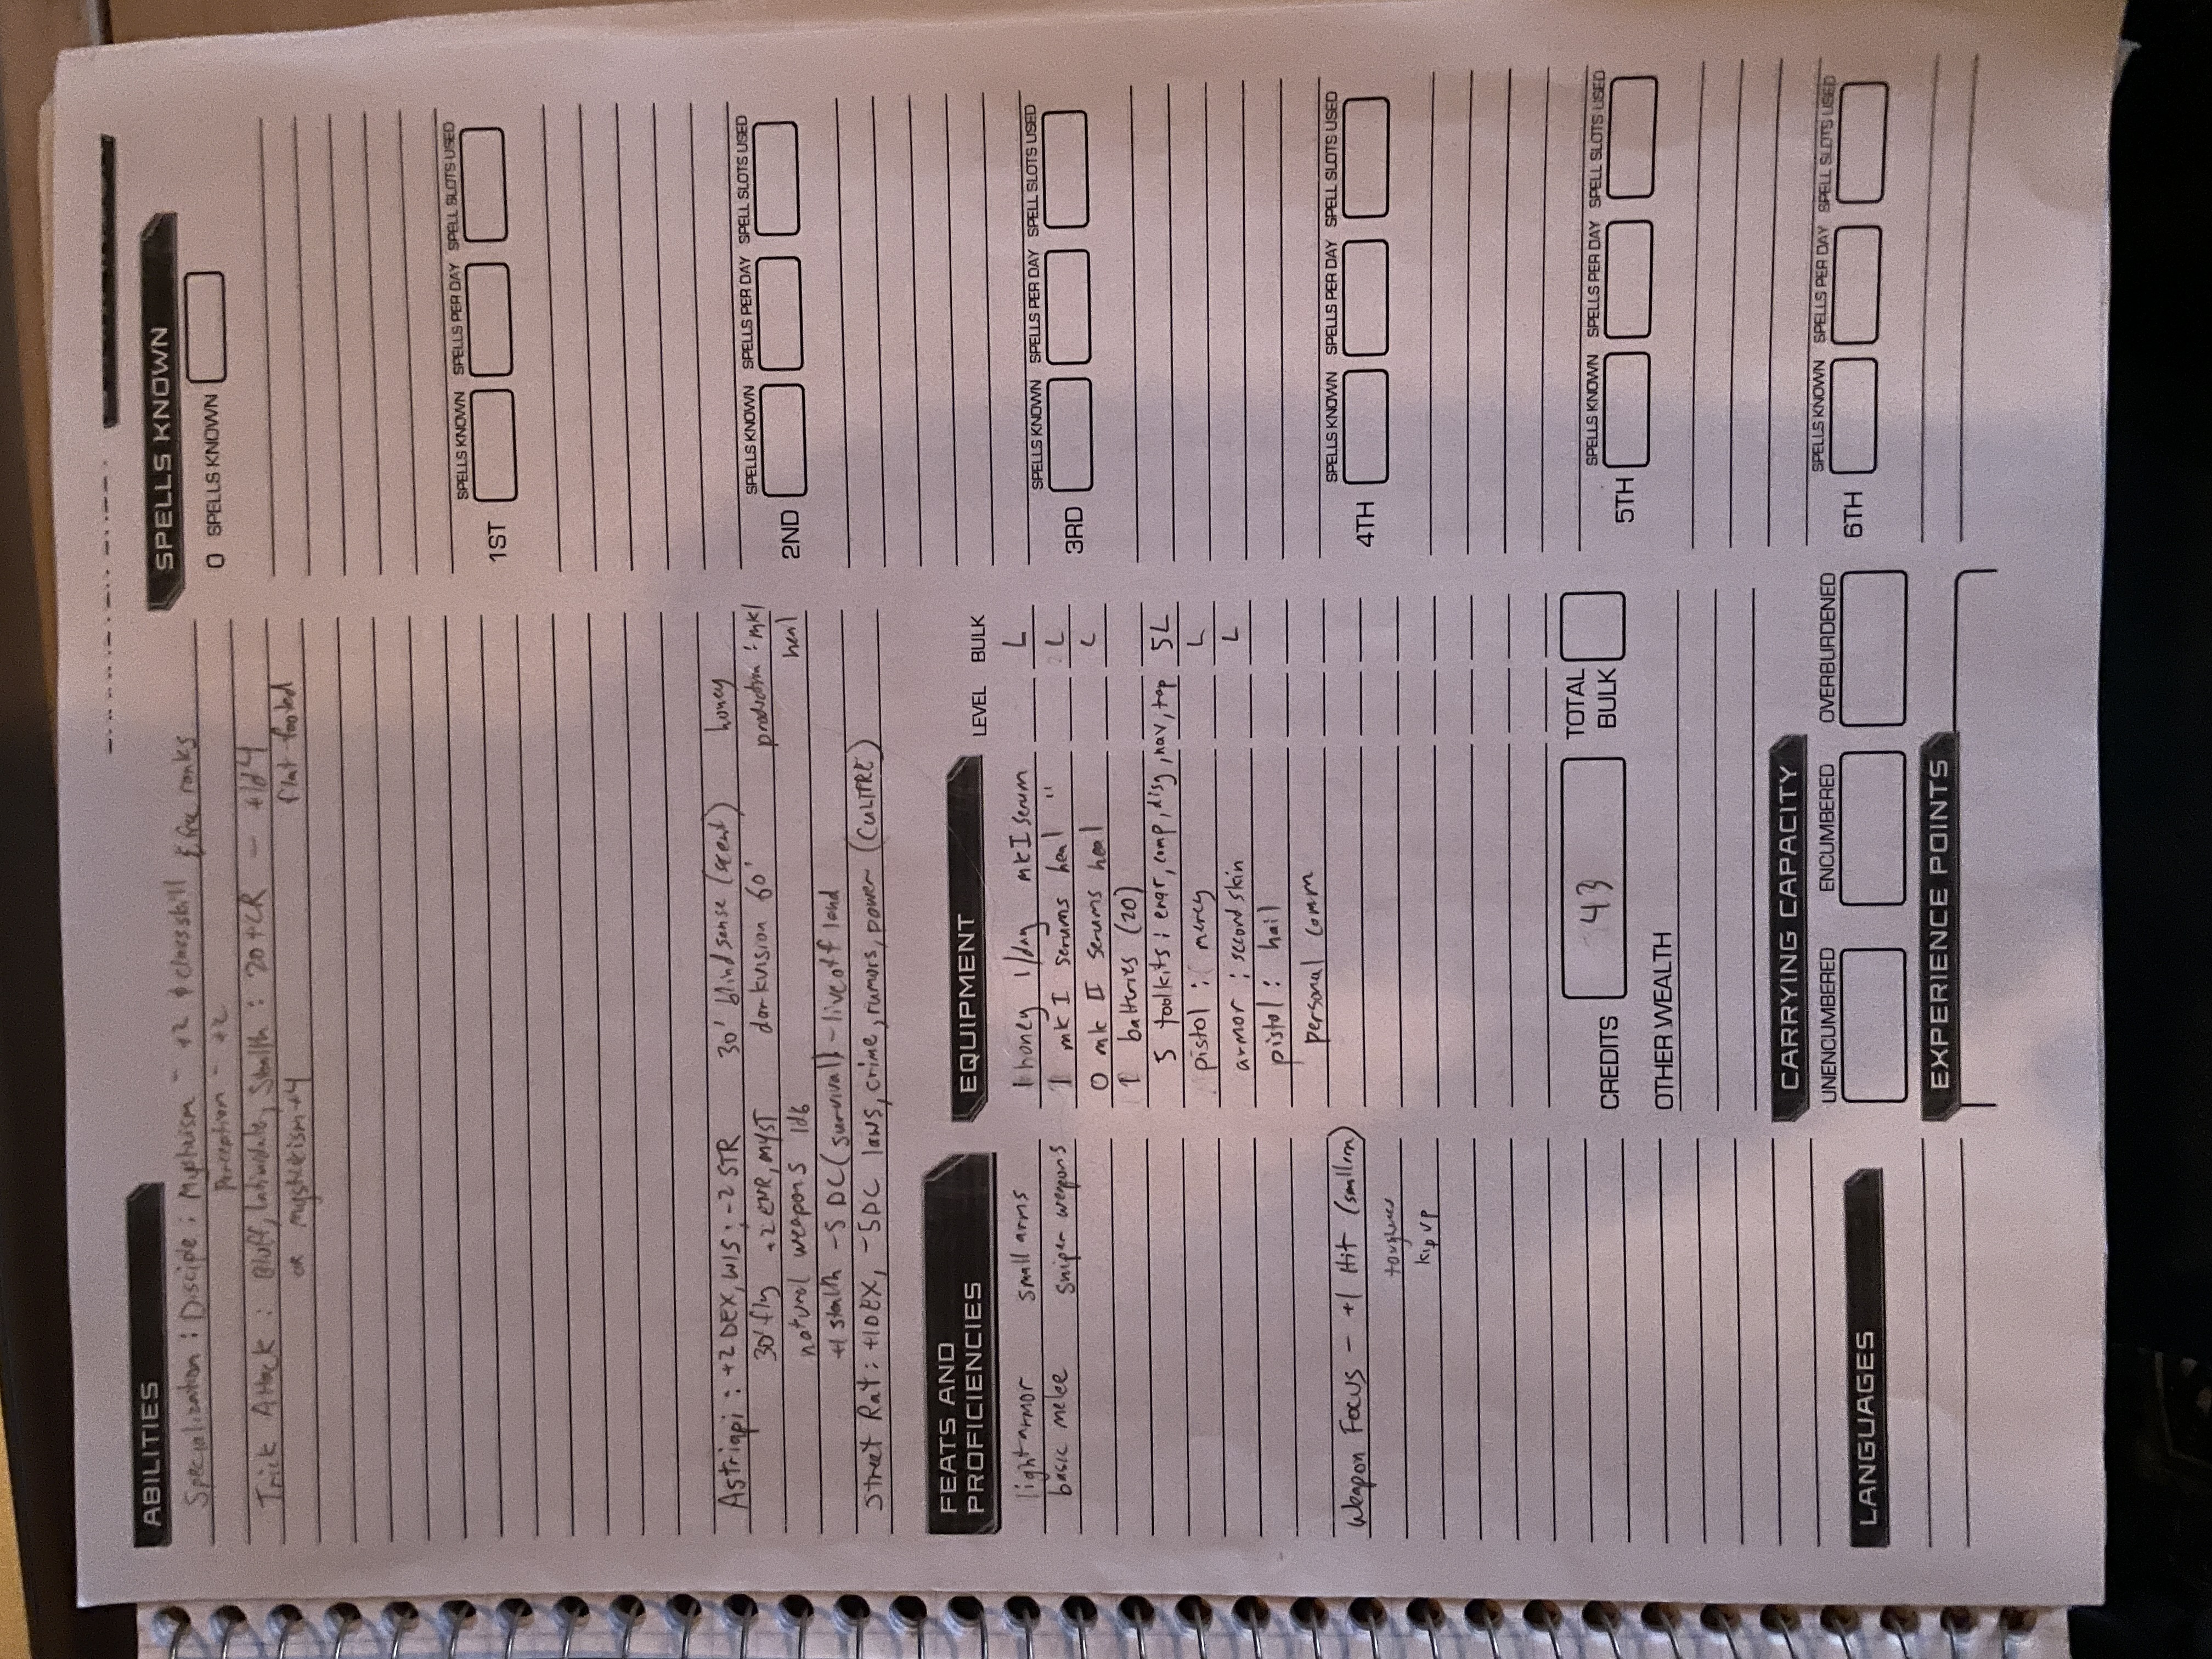 ABILITIES
Specialization : Disciple : - +2 & class skill & free ranks
Perception - +2
Trick Attack : Bluff, Intimidate, Stealth : 20+CR - +1d4
or mysticism +4 flat footed
Astriapi : +2 DEX, WIS ; -2 STR 30' blindsense (scent) honey
30' fly +2 ENR, MYST darkvision 60' production : mk1
natural weapons 1d6 heal
+1 stealth -5 DC (survival) - live off land
Street Rat : +1 DEX, -5 DC laws, crime, rumors, power
FEATS AND
PROFICIENCIES
light armor small arms
basic melee sniper weapons
Weapon Focus - +1 Hit
kip up
LANGUAGES
EQUIPMENT LEVEL BULK
1 honey 1/day mk I serum L
1 mk I serums heal " L
0 mk II serums heal L
1 batteries (20)
5 toolkits : engr, comp, disg, nav, 5L
pistol : mercy L
armor : second skin L
pistol : hail
personal comm
CREDITS 43 TOTAL BULK
OTHER WEALTH
CARRYING CAPACITY
UNENCUMBERED ENCUMBERED OVERBURDENED
EXPERIENCE POINTS
SPELLS KNOWN
0 SPELLS KNOWN
SPELLS KNOWN SPELLS PER DAY SPELL SLOTS USED
1ST
SPELLS KNOWN SPELLS PER DAY SPELL SLOTS USED
2ND
SPELLS KNOWN SPELLS PER DAY SPELL SLOTS USED
3RD
SPELLS KNOWN SPELLS PER DAY SPELL SLOTS USED
4TH
SPELLS KNOWN SPELLS PER DAY SPELL SLOTS USED
5TH
SPELLS KNOWN SPELLS PER DAY SPELL SLOTS USED
6TH